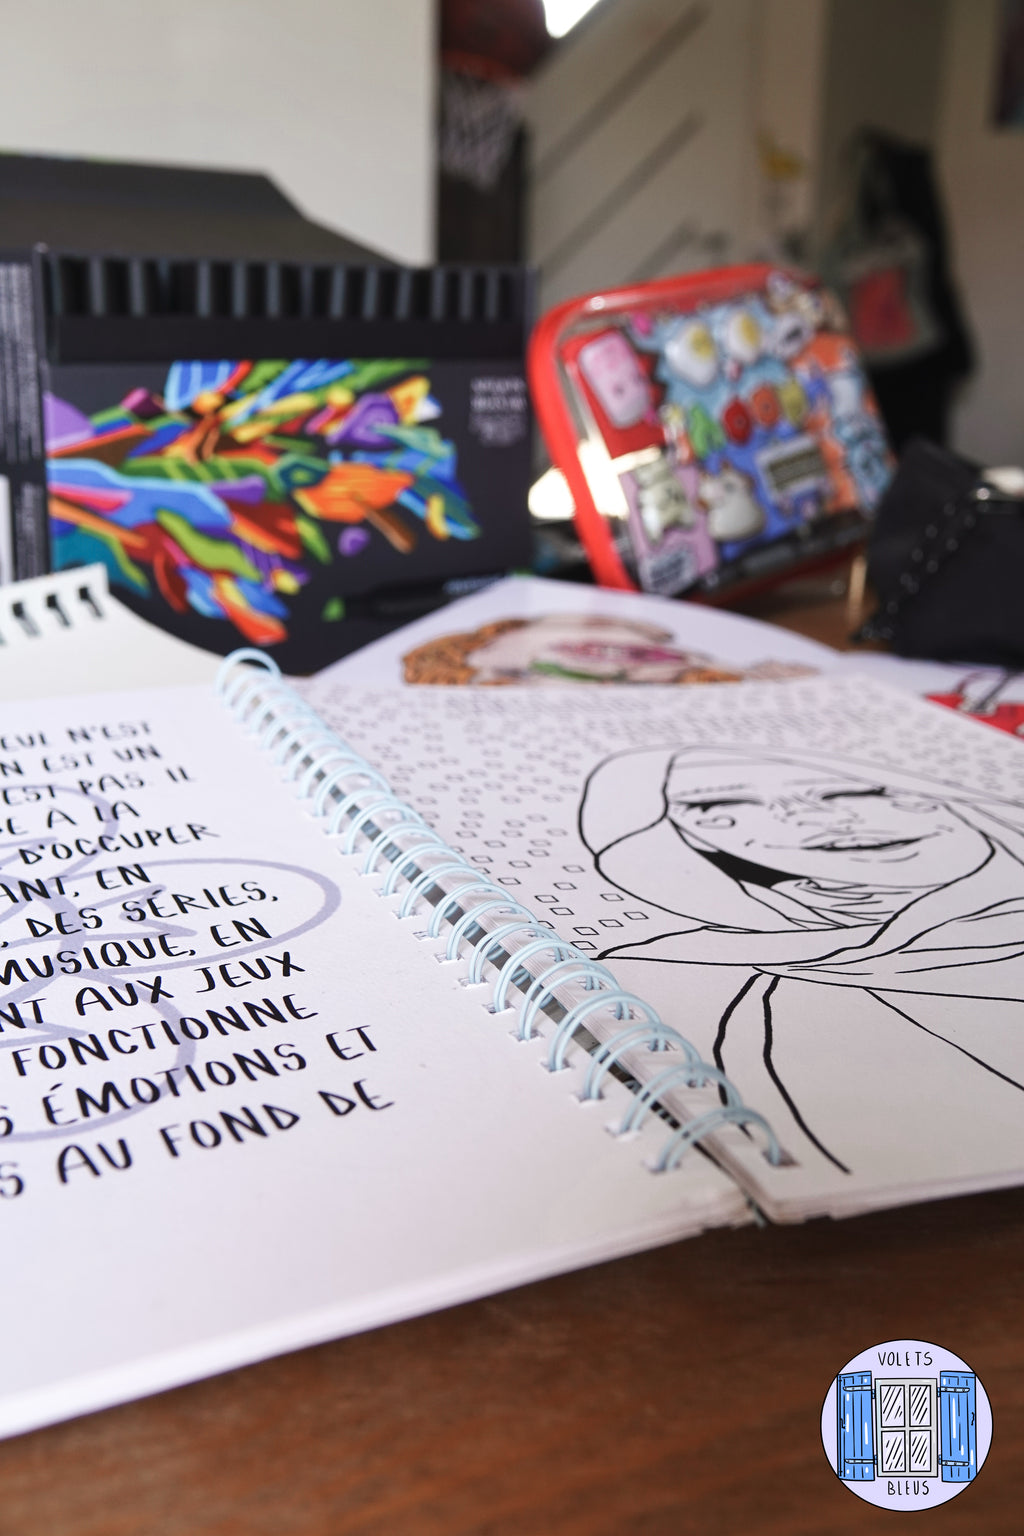 EUL N'EST
N EST UN
'EST PAS. IL
E À LA
D'OCCUPER
ANT, EN
, DES SÉRIES,
MUSIQUE, EN
NT AUX JEUX
FONCTIONNE
S ÉMOTIONS ET
S AU FOND DE
VOLETS
BLEUS